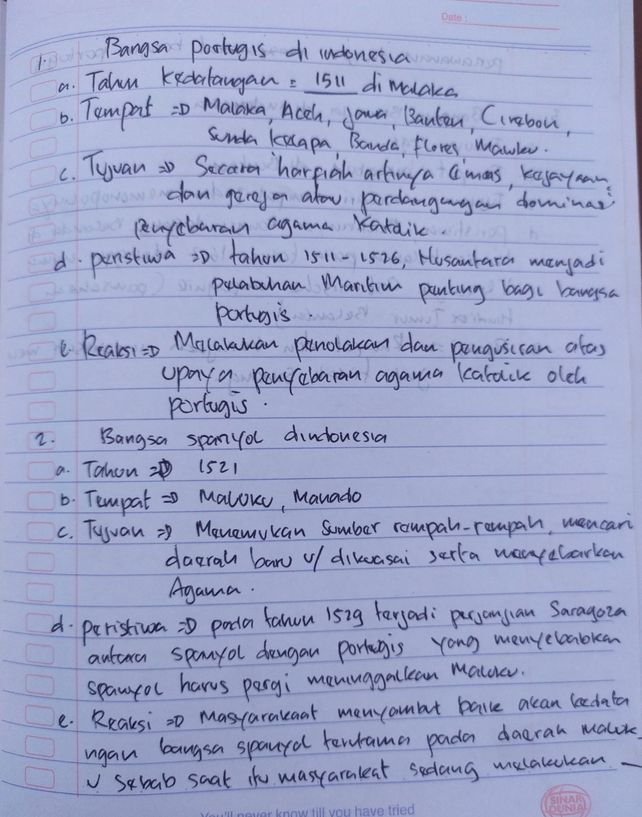 Date :
1. Bangsa portugis di indonesia
a. Tahun kedatangan = 1511 di Malaka
b. Tempat => Malaka, Aceh, jawa, Banten, Cirebon,
Sunda kelapa Banda, flores, Maluku.
c. Tujuan => Secara harfiah artinya Emas, kejayaan,
dan gereja atau perdangangan dominasi
penyebaran agama Katolik.
d. peristiwa => tahun 1511-1526, Nusantara menjadi
pelabuhan Maritim penting bagi bangsa
portugis.
e. Reaksi => Melakukan penolakan dan pengusiran atas
upaya penyebaran agama Katolik oleh
portugis.
2. Bangsa spanyol diindonesia
a. Tahun => 1521
b. Tempat => Maluku, Manado
c. Tujuan => Menemukan sumber rempah-rempah, mencari
daerah baru u/ dikuasai serta menyebarkan
Agama.
d. peristiwa => pada tahun 1529 terjadi perjanjian Saragoza
antara spanyol dengan portugis yang menyebabkan
spanyol harus pergi meninggalkan Maluku.
e. Reaksi => Masyarakaat menyambut baik akan kedata
ngan bangsa spanyol terutama pada daerah maluk
u sebab saat itu masyarakat sedang melakukan -
You'll never know till you have tried
SINAR DUNIA